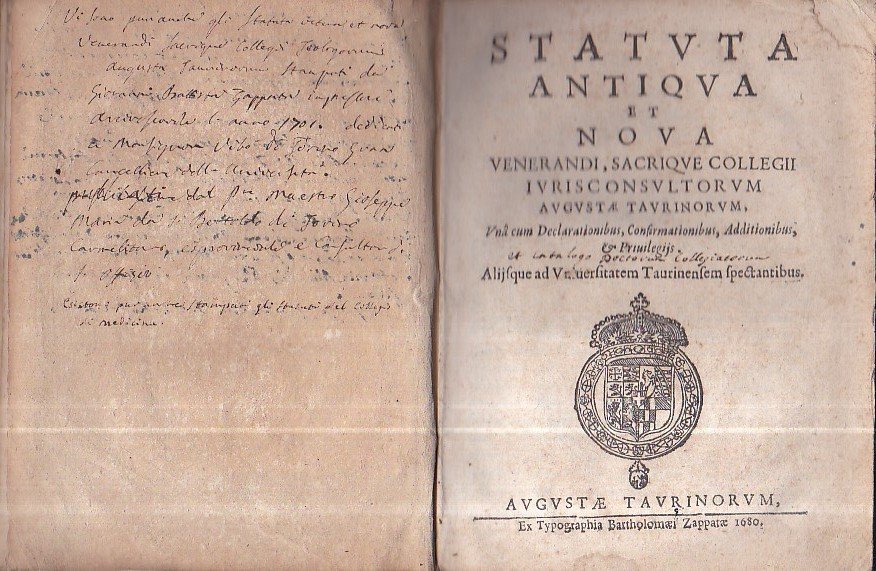 Vi sono purianche gli Statuta vetera et nova
Venerandi Sacrique Collegii Teologorum
Augustæ Taurinorum stampati da
Giovanni Battista Zappata Impressore
Arcivescovile l'anno 1701. dedicati
a Monsignor Vibò di Torino Gran
Cancelliere della Università.
dal Pre. Maestro Giuseppe
Maria da S. Bertoldo di Torino
Carmelitano, e Consultore
S. Offizio
stampati gli statuti del Collegio
di Medicina.
STATVTA
ANTIQVA
ET
NOVA
VENERANDI, SACRIQVE COLLEGII
IVRISCONSVLTORVM
AVGVSTÆ TAVRINORVM,
Vnâ cum Declarationibus, Confirmationibus, Additionibus,
& Priuilegijs.
et catalogo Doctorum Collegiatorum
Alijsque ad Vniuersitatem Taurinensem spectantibus.
AVGVSTÆ TAVRINORVM,
Ex Typographia Bartholomæi Zappatæ 1680.